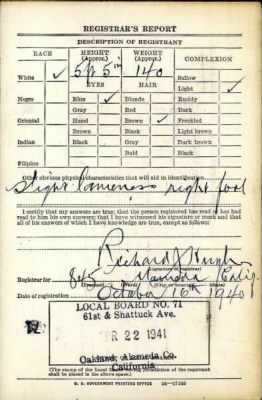 REGISTRAR'S REPORT
DESCRIPTION OF REGISTRANT
RACE HEIGHT (Approx.) WEIGHT (Approx.) COMPLEXION
5 ft 5 in 140
White ✓ EYES HAIR Sallow
Light ✓
Negro Blue ✓ Blonde Ruddy
Gray Red Dark
Oriental Hazel Brown ✓ Freckled
Brown Black Light brown
Indian Black Gray Dark brown
Bald Black
Filipino
Other obvious physical characteristics that will aid in identification
Slight lameness right foot
I certify that my answers are true; that the person registered has read or has had
read to him his own answers; that I have witnessed his signature or mark and that
all of his answers of which I have knowledge are true, except as follows:
Richard J
Registrar for 845 Alameda Calif.
Date of registration October 16th 1940
LOCAL BOARD NO. 71
61st & Shattuck Ave.
APR 22 1941
Oakland, Alameda Co.
California
(The stamp of the Local Board having jurisdiction of the registrant
shall be placed in the above space.)
U. S. GOVERNMENT PRINTING OFFICE